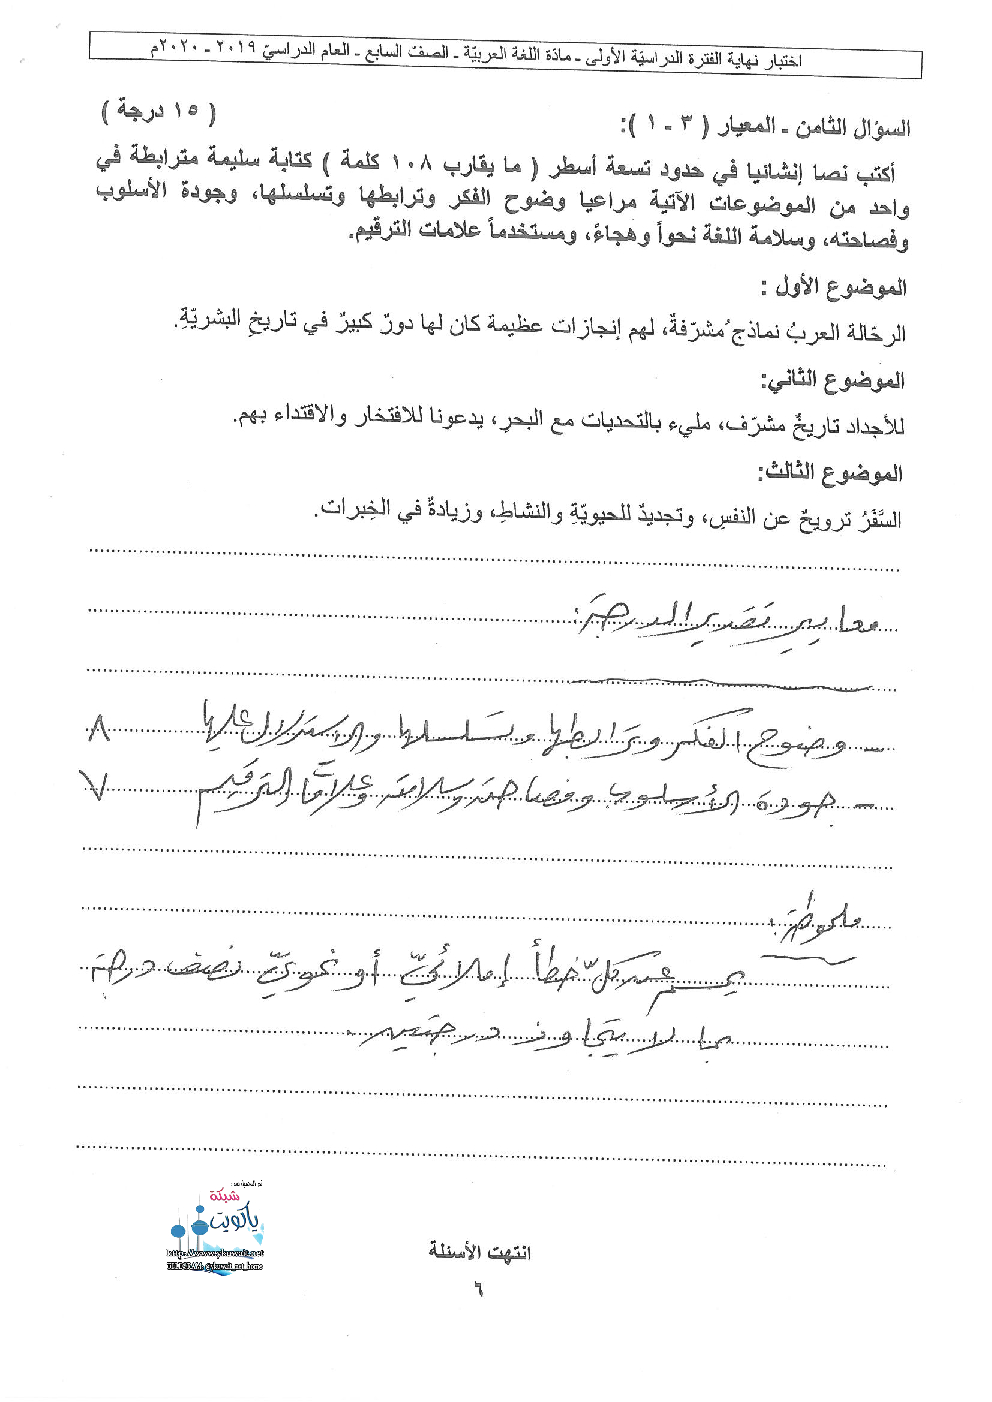 اختبار نهاية الفترة الدراسيّة الأولى - مادّة اللغة العربيّة - الصفّ السابع - العام الدراسيّ ٢٠١٩ - ٢٠٢٠م
السؤال الثامن - المعيار ( ٣ - ١ ): ( ١٥ درجة )
أكتب نصا إنشائيا في حدود تسعة أسطر ( ما يقارب ١٠٨ كلمة ) كتابة سليمة مترابطة في
واحد من الموضوعات الآتية مراعيا وضوح الفكر وترابطها وتسلسلها، وجودة الأسلوب
وفصاحته، وسلامة اللغة نحواً وهجاءً، ومستخدماً علامات الترقيم.
الموضوع الأول :
الرحّالة العربُ نماذجُ مُشرّفةٌ، لهم إنجازات عظيمة كان لها دورٌ كبيرٌ في تاريخِ البشريّةِ.
الموضوع الثاني:
للأجداد تاريخٌ مشرّف، مليء بالتحديات مع البحرِ، يدعونا للافتخار والاقتداء بهم.
الموضوع الثالث:
السَّفَرُ ترويحٌ عن النفسِ، وتجديدٌ للحيويّةِ والنشاطِ، وزيادةٌ في الخِبرات.
معايير تقدير الدرجة:
- وضوح الفكر وترابطها وتسلسلها والاستدلال عليها ٨
- جودة الأسلوب وفصاحته وسلامته وعلامات الترقيم ٧
ملحوظة:
يحسم عند كلّ خطأ إملائيّ أو نحويّ نصف درجة
بما لا يتجاوز درجتين.
شبكة
ياكويت
انتهت الأسئلة
٦